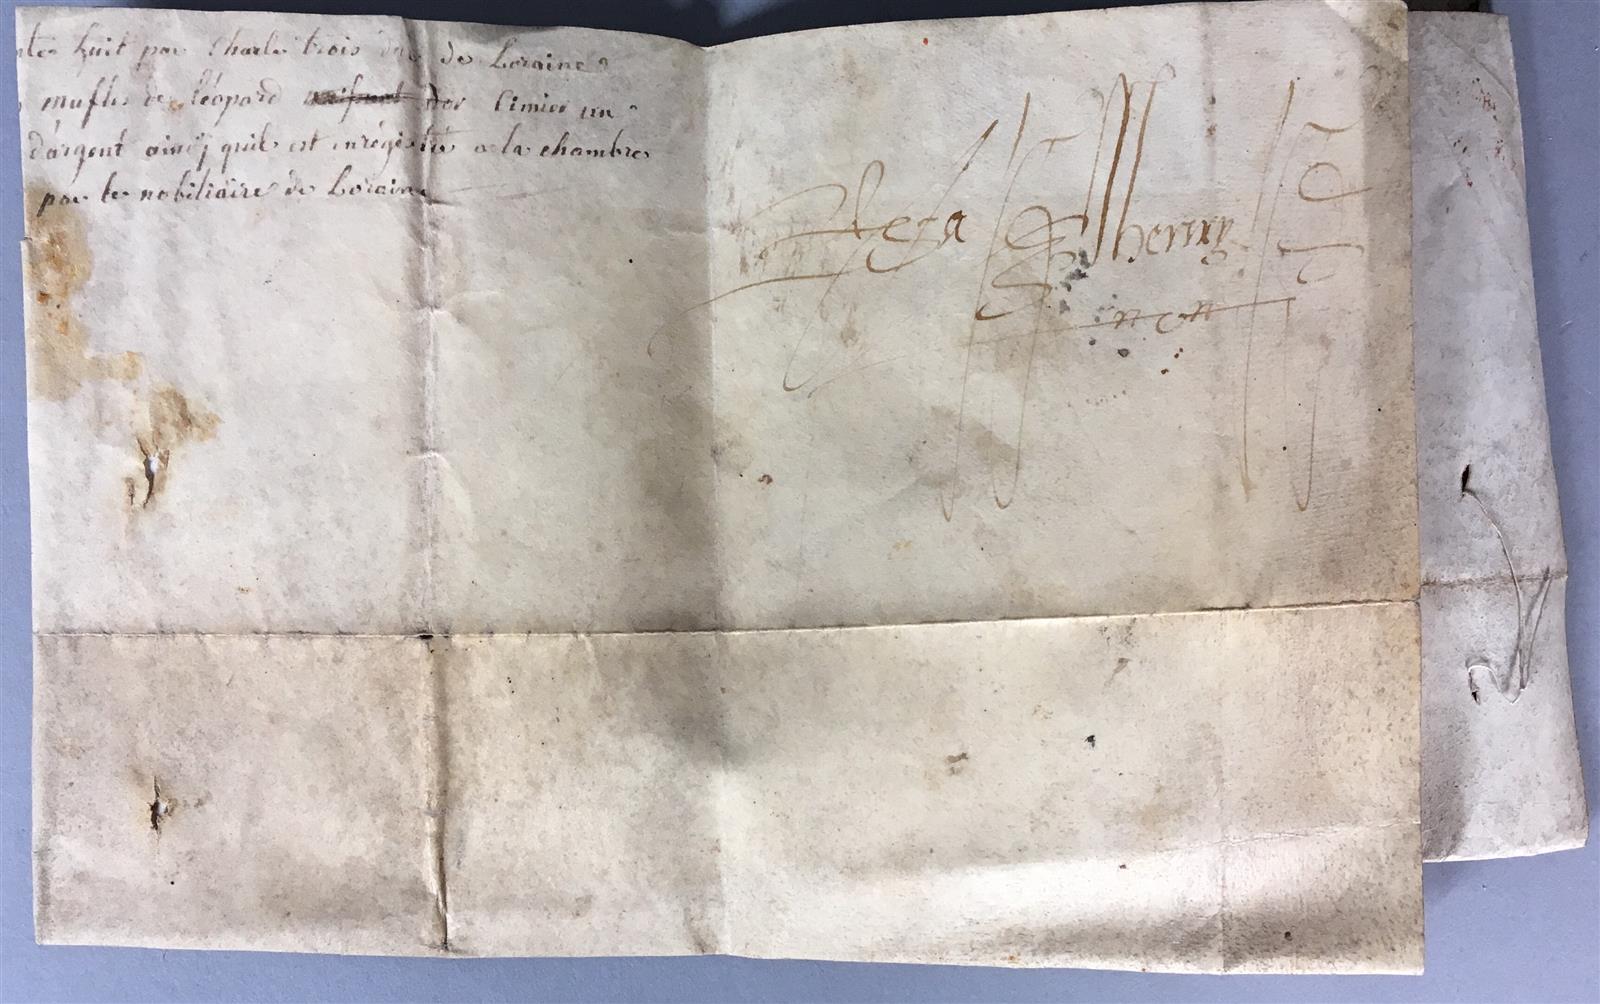 huit par Charle trois duc de Loraine
mufles de léopard d'or Cimier un
d'argent ainsÿ quil est enrégistré a la chambre
par le nobiliaire de Loraine
henry
non